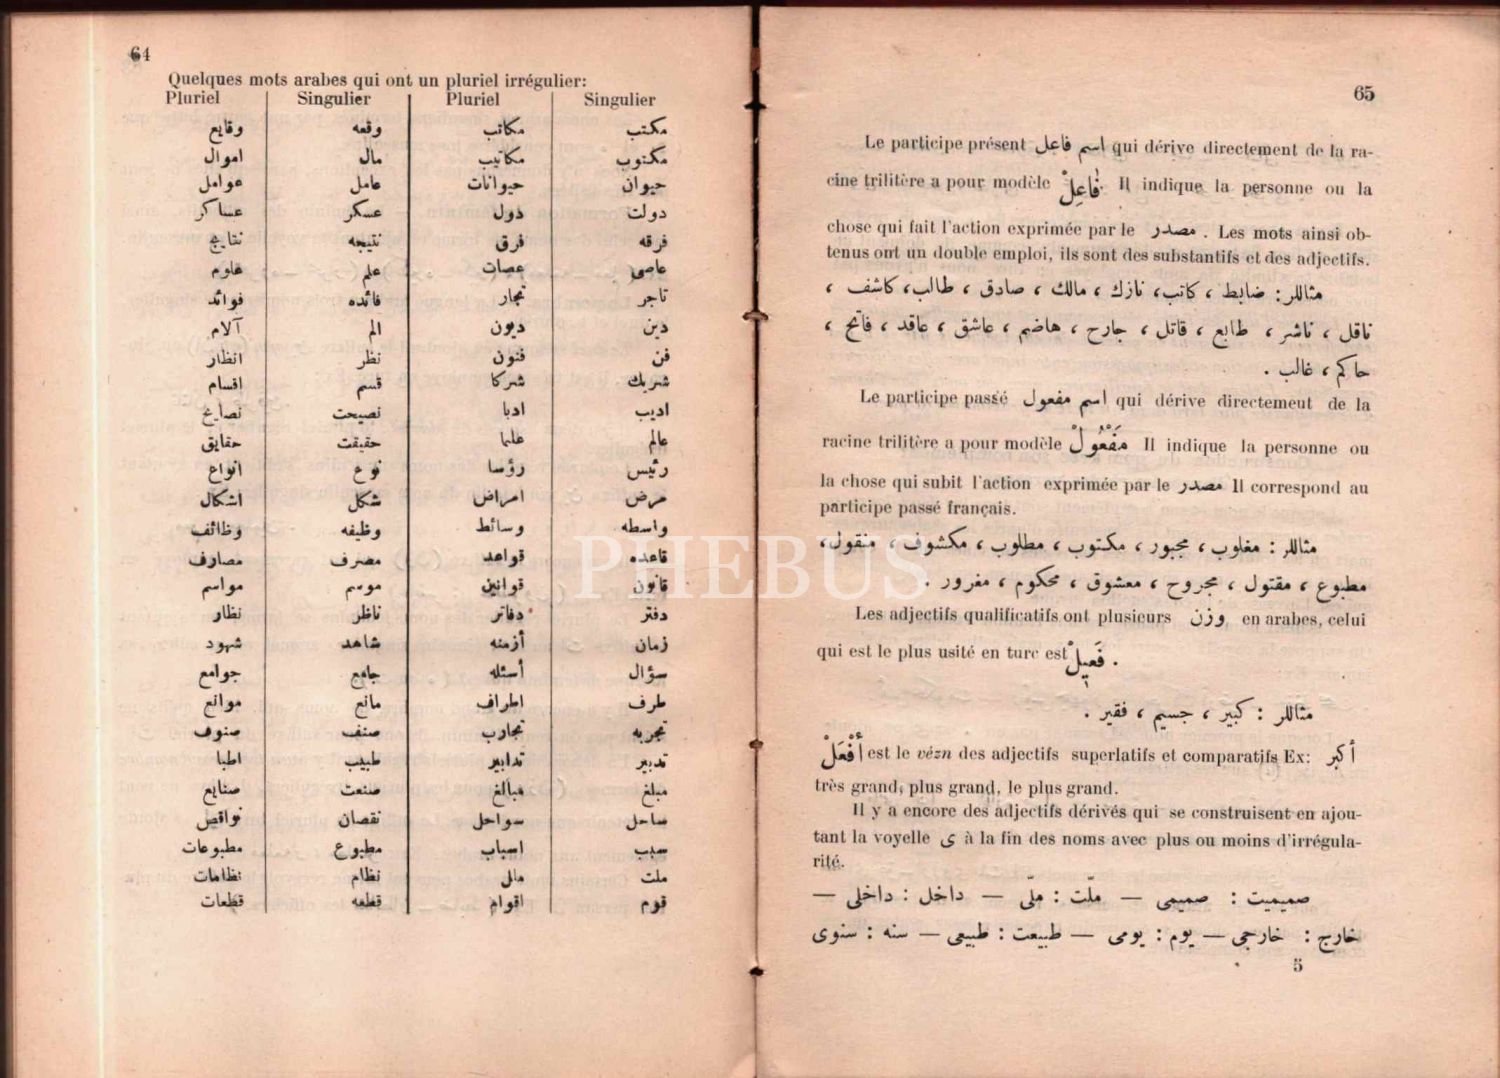 64
Quelques mots arabes qui ont un pluriel irrégulier:
Pluriel Singulier Pluriel Singulier
مكتب مكاتب وقعه وقايع
مكتوب مكاتيب مال اموال
حيوان حيوانات عامل عوامل
دولت دول عسكر عساكر
فرقه فرق نتيجه نتايج
عاصى عصات علم علوم
تاجر تجار فائده فوائد
دين ديون الم آلام
فن فنون نظر انظار
شريك شركا قسم اقسام
اديب ادبا نصيحت نصايح
عالم علما حقيقت حقايق
رئيس رؤسا نوع انواع
مرض امراض شكل اشكال
واسطه وسائط وظيفه وظائف
قاعده قواعد مصرف مصارف
قانون قوانين موسم مواسم
دفتر دفاتر ناظر نظار
زمان أزمنه شاهد شهود
سؤال أسئله جامع جوامع
طرف اطراف مانع موانع
تجربه تجارب صنف صنوف
تدبير تدابير طبيب اطبا
مبلغ مبالغ صنعت صنايع
ساحل سواحل نقصان نواقص
سبب اسباب مطبوع مطبوعات
ملت ملل نظام نظامات
قوم اقوام قطعه قطعات
65
Le participe présent اسم فاعل qui dérive directement de la ra-
cine trilitère a pour modèle فَاعِلْ. Il indique la personne ou la
chose qui fait l'action exprimée par le مصدر . Les mots ainsi ob-
tenus ont un double emploi, ils sont des substantifs et des adjectifs.
مثاللر: ضابط ، كاتب، نازك ، مالك ، صادق ، طالب، كاشف ،
ناقل ، ناشر ، طابع ، قاتل ، جارح ، هاضم ، عاشق ، عاقد ، فاتح ،
حاكم ، غالب .
Le participe passé اسم مفعول qui dérive directemeut de la
racine trilitère a pour modèle مَفْعُولْ Il indique la personne ou
la chose qui subit l'action exprimée par le مصدر Il correspond au
participe passé français.
مثاللر : مغلوب ، مجبور ، مكتوب ، مطلوب ، مكشوف ، منقول،
مطبوع ، مقتول ، مجروح ، معشوق ، محكوم ، مغرور .
Les adjectifs qualificatifs ont plusieurs وزن en arabes, celui
qui est le plus usité en turc est فَعِيلْ .
مثاللر : كبير ، جسيم ، فقير .
أَفْعَلْ est le vézn des adjectifs superlatifs et comparatifs Ex: أكبر
très grand, plus grand, le plus grand.
Il y a encore des adjectifs dérivés qui se construisent en ajou-
tant la voyelle ى à la fin des noms avec plus ou moins d'irrégula-
rité.
صميميت : صميمى — ملّت : ملّى — داخل : داخلى —
خارج : خارجى — يوم : يومى — طبيعت : طبيعى — سنه : سنوى
5
PHEBUS